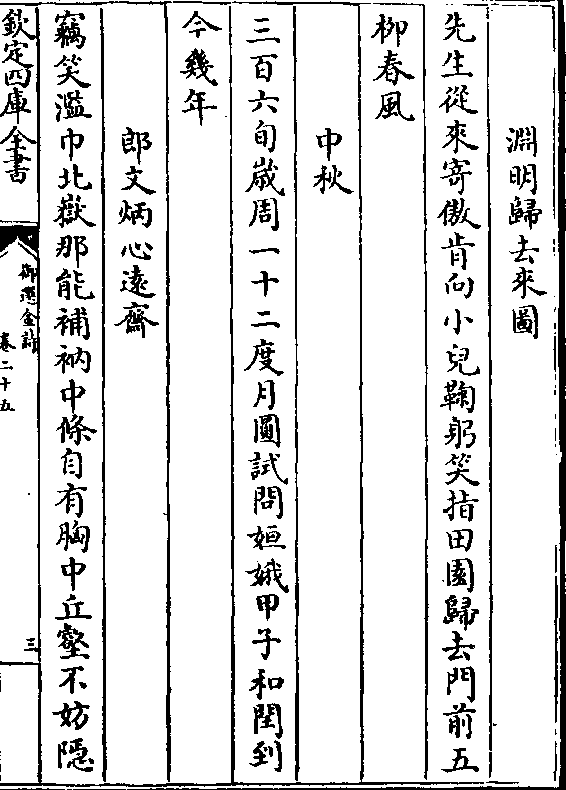 淵明歸去來圖
先生從來寄傲肯向小兒鞠躬笑指田園歸去門前五
柳春風
中秋
三百六旬歳周一十二度月圓試問姮娥甲子和閏到
今幾年
郎文炳心遠齋
竊笑濫巾北嶽那能補衲中條自有胸中丘壑不妨隱
欽定四庫全書
御選金詩
卷二十五
三